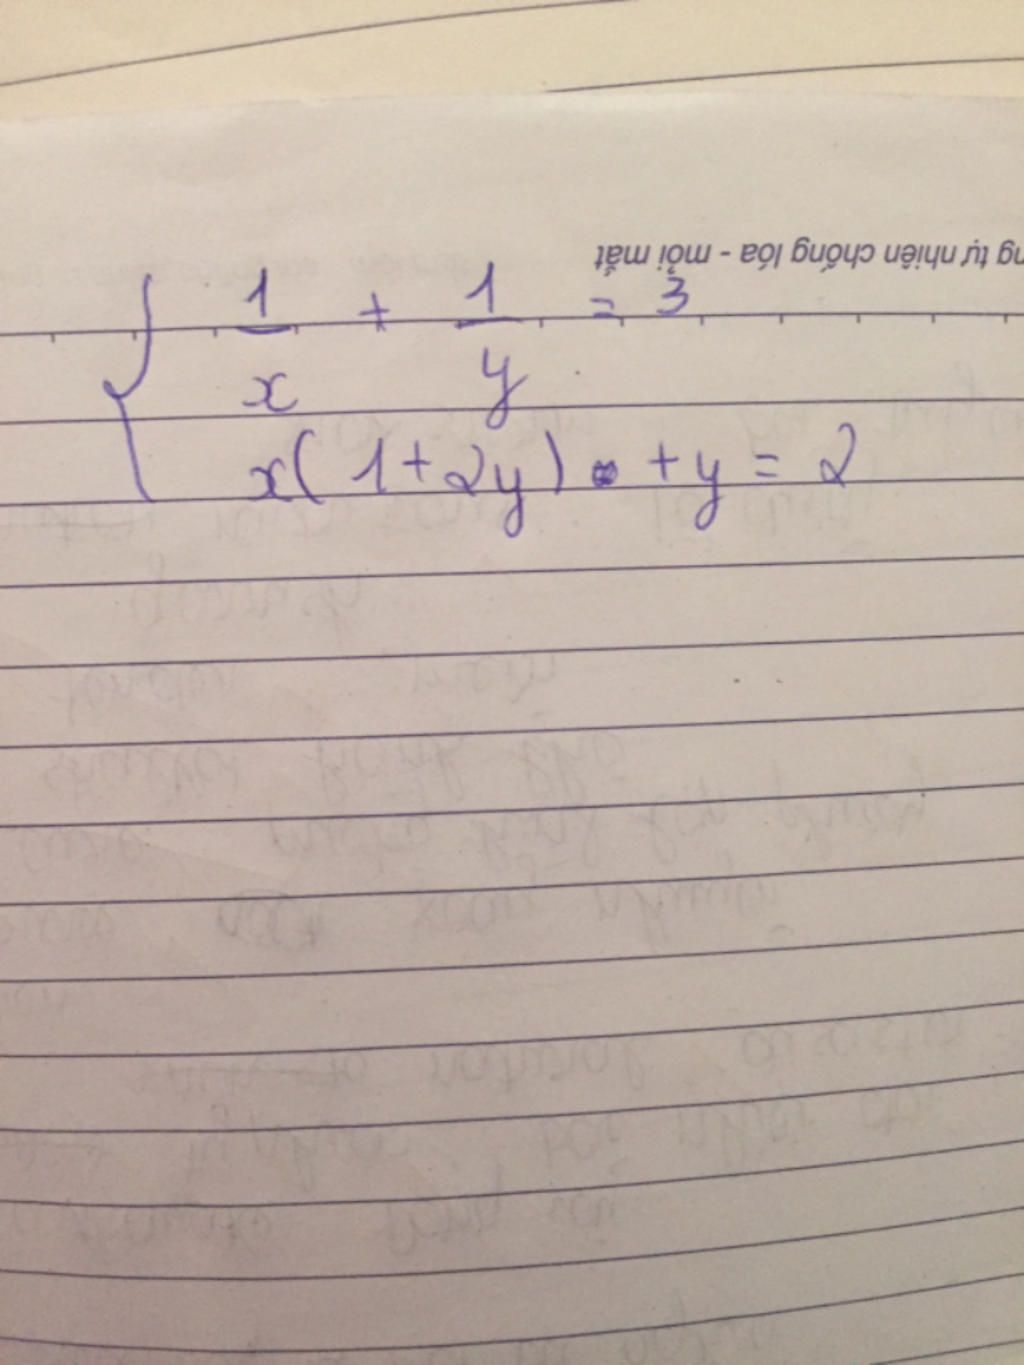 ng tự nhiên chống lóa - mỏi mắt
1/x + 1/y = 3
x(1+2y) + y = 2